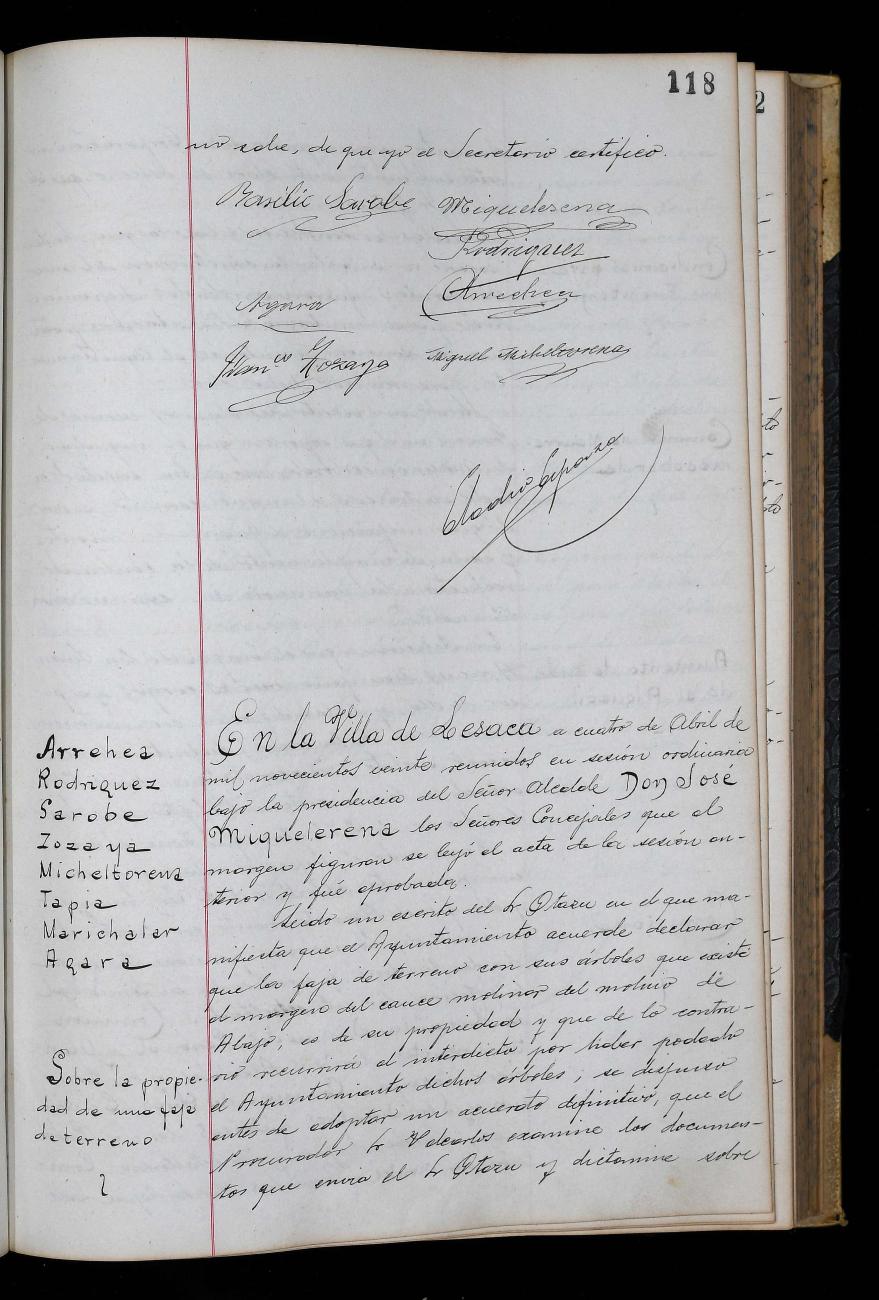 118
no sabe, de que yo el Secretario certifico.
Basilio Sarobe
Miquelerena
Rodriguez
Agara
Arrechea
Franco Zozaya
Miguel Micheltorena
Eladio Esparza
Arrehea
Rodriguez
Sarobe
Zozaya
Micheltorena
Tapia
Marichalar
Agara
En la Villa de Lesaca a cuatro de Abril de
mil novecientos veinte reunidos en sesión ordinaria
bajo la presidencia del Señor Alcalde Don José
Miquelerena los Señores Concejales que al
margen figuran se leyó el acta de la sesión an-
terior y fué aprobada.
Sobre la propie-
dad de una faja
de terreno
Leido un escrito del Sr Otazu en el que ma-
nifiesta que el Ayuntamiento acuerde declarar
que la faja de terreno con sus árboles que existe
al margen del cauce molinar del molino de
Abajo, es de su propiedad y que de lo contra-
rio recurrirá al interdicto por haber podado
el Ayuntamiento dichos árboles; se dispuso
antes de adoptar un acuerdo definitivo, que el
Procurador Sr Valcarlos examine los documen-
tos que envia el Sr Otazu y dictamine sobre